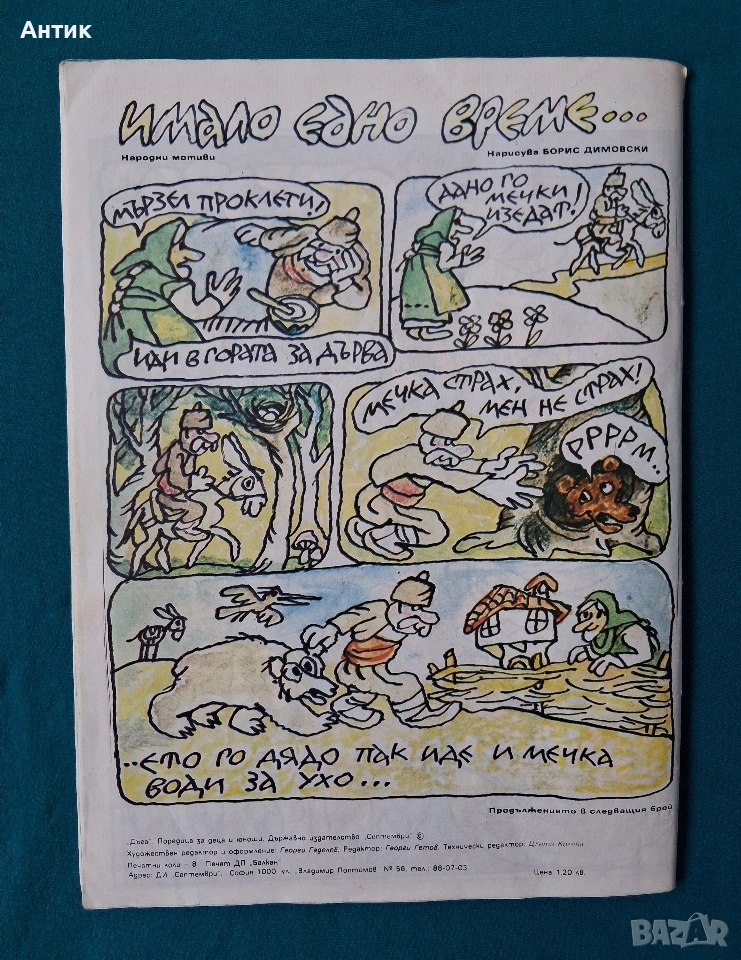 Антик
ИМАЛО ЕДНО ВРЕМЕ...
Народни мотиви
Нарисува БОРИС ДИМОВСКИ
МЪРЗЕЛ ПРОКЛЕТИ!
ИДИ В ГОРАТА ЗА ДЪРВА
ДАНО ГО
МЕЧКИ
ИЗЕДАТ!
МЕЧКА СТРАХ,
МЕН НЕ СТРАХ!
РРРРМ..
..ЕТО ГО ДЯДО ПАК ИДЕ И МЕЧКА
ВОДИ ЗА УХО...
Продължението в следващия брой
„Дъга". Поредица за деца и юноши. Държавно издателство „Септември" ©
Художествен редактор и оформление: Георги Гаделев. Редактор: Георги Гетов. Технически редактор: Цветa
Печатни коли – 8 Печат ДП „Балкан"
Адрес: ДИ „Септември" – София 1000 ул. „Владимир Поптомов" № 56, тел.: 88-07-03
Цена 1,20 лв.
BAZAR